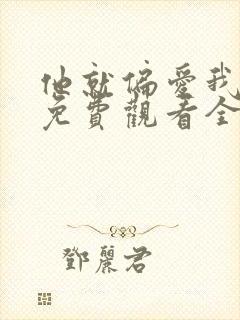 他就偏愛我
免費觀看全
鄧麗君